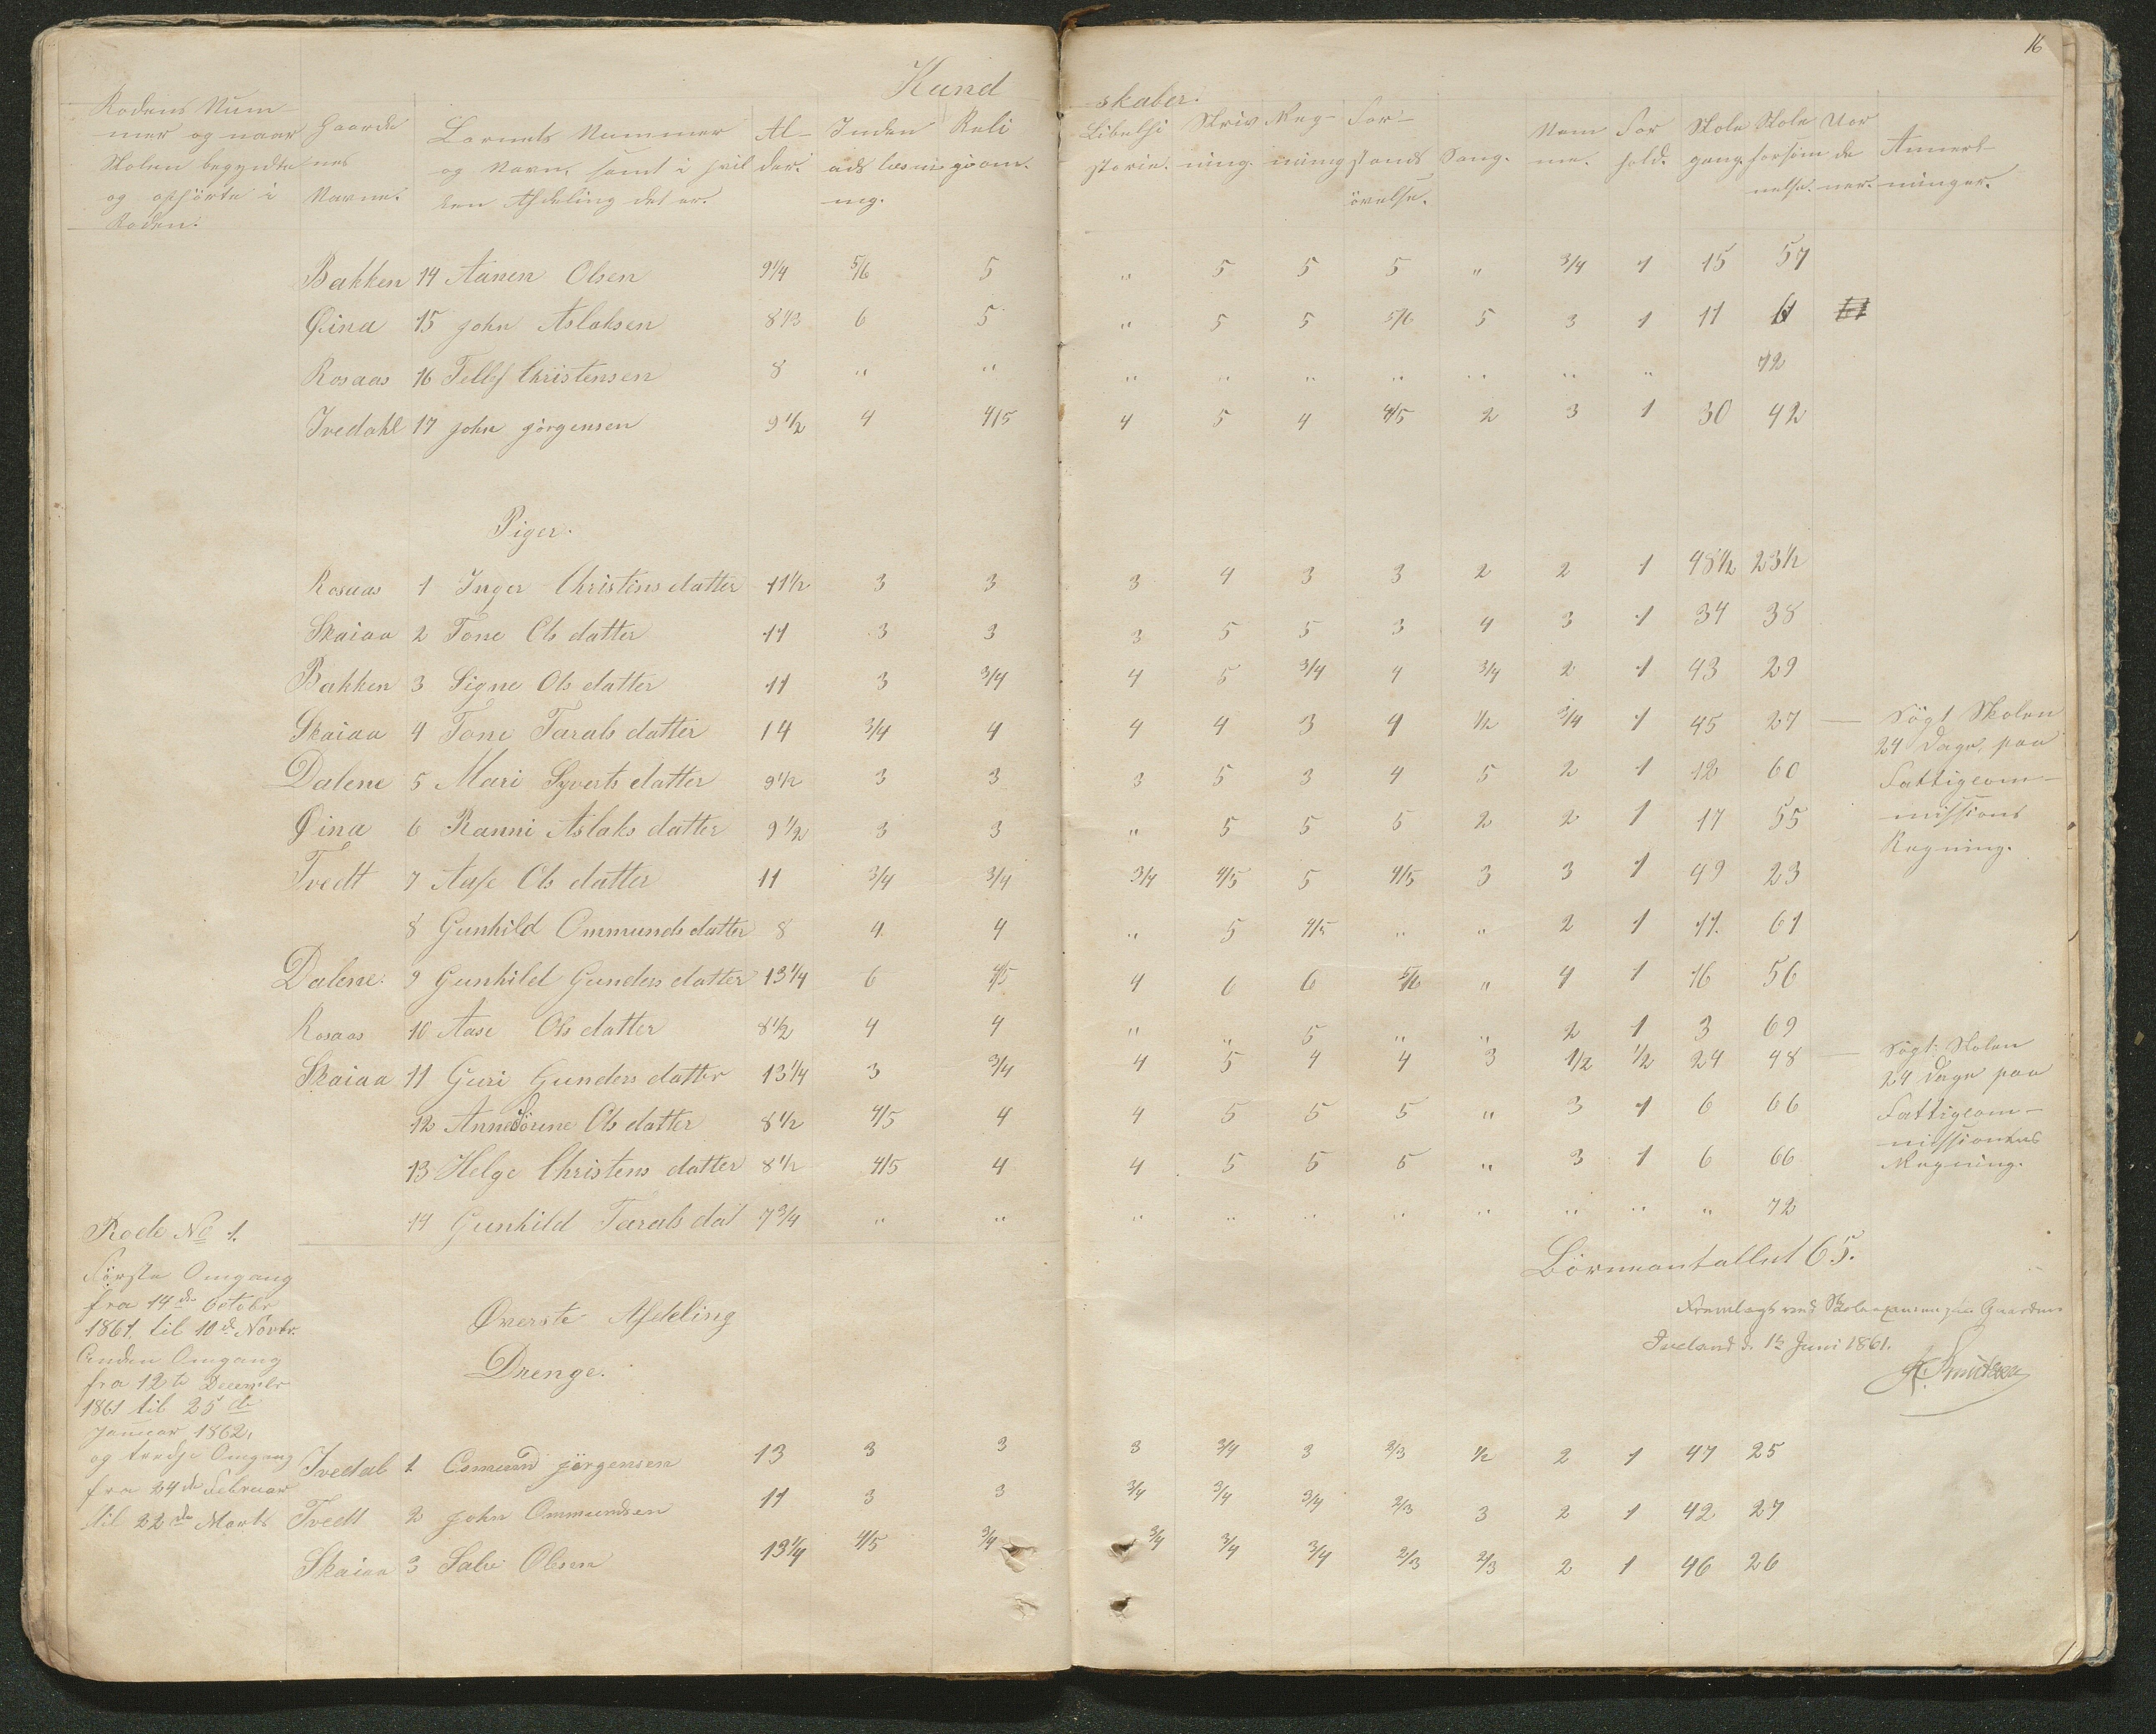 16
Kund skaber.
Rodens Num-
mer og naar
Skolen begyndte
og ophörte i
Roden.
Gaarde
nes
Navne.
Barnets Nummer
og Navn, samt i hvil
ken Afdeling det er.
Al-
der.
Inden
ads læsni
ng.
Reli
gion.
Bibelhi
storie.
Skriv
ning.
Reg-
ning
For-
stands
övelse.
Sang.
Nem
me.
For
hold.
Skole
gang.
Skole
forsöm
nelse.
Anmærk-
ninger.
Bakken 14 Aanen Olsen 9 1/4 5/6 5 " 5 5 5 " 3/4 1 15 57
Øina 15 John Aslaksen 8 1/3 6 5 " 5 5 5/6 5 3 1 11 61
Rosaas 16 Tellef Christensen 8 " " " " " " " " " 72
Ivedahl 17 John Jörgensen 9 1/2 4 4/5 4 5 4 4/5 2 3 1 30 42
Piger.
Rosaas 1 Inger Christensdatter 11 1/2 3 3 3 4 3 3 2 2 1 48 1/2 23 1/2
Skaiaa 2 Tone Olsdatter 11 3 3 3 5 5 3 4 3 1 34 38
Bakken 3 Signe Olsdatter 11 3 3/4 4 5 3/4 4 3/4 2 1 43 29
Skaiaa 4 Tone Taralsdatter 14 3/4 4 4 4 3 4 1/2 3/4 1 45 27 — Sögt Skolen
24 Dage, paa
Fattigcom-
missions
Regning.
Dalene 5 Mari Syvertsdatter 9 1/2 3 3 3 5 3 4 5 2 1 12 60
Øina 6 Ranni Aslaksdatter 9 1/2 3 3 " 5 5 5 2 2 1 17 55
Tvedt 7 Aase Olsdatter 11 3/4 3/4 3/4 4/5 5 4/5 3 3 1 49 23
8 Gunhild Ommundsdatter 8 4 4 " 5 4/5 " " 2 1 11. 61
Dalene. 9 Gunhild Gundersdatter 13 1/4 6 4/5 4 6 6 5/6 " 4 1 16 56
Rosaas 10 Aase Olsdatter 8 1/2 4 4 " " 5 " " 2 1 3 69
Skaiaa 11 Guri Gundersdatter 13 1/4 3 3/4 4 5 4 4 3 1/2 1/2 24 48 — Sögt Skolen
24 Dage paa
Fattigcom-
missionens
Regning.
12 Anne Sörine Olsdatter 8 1/2 4/5 4 4 5 5 5 " 3 1 6 66
13 Helge Christensdatter 8 1/2 4/5 4 4 5 5 5 " 3 1 6 66
14 Gunhild Taralsdat 7 3/4 " " " " " " " " " " 72
Börneantallet 65.
Fremlagt ved Skoleexamen paa Gaarden
Iveland d. 12 Juni 1861.
Knudsen
Rode No 1.
Förste Omgang
fra 14de Octobr
1861, til 10de Novbr.
Anden Omgang
fra 12te December
1861 til 25de
Januar 1862,
og tredje Omgang
fra 24de Februar
til 22de Marts
Øverste Afdeling
Drenge.
Ivedal 1 Osmund Jörgensen 13 3 3 3 3/4 3 2/3 1/2 2 1 47 25
Tvedt 2 John Ommundsen 11 3 3 3/4 3/4 3/4 2/3 3 2 1 42 27
Skaiaa 3 Salve Olsen 13 1/4 4/5 3/4 3/4 3/4 3/4 2/3 2/3 2 1 46 26